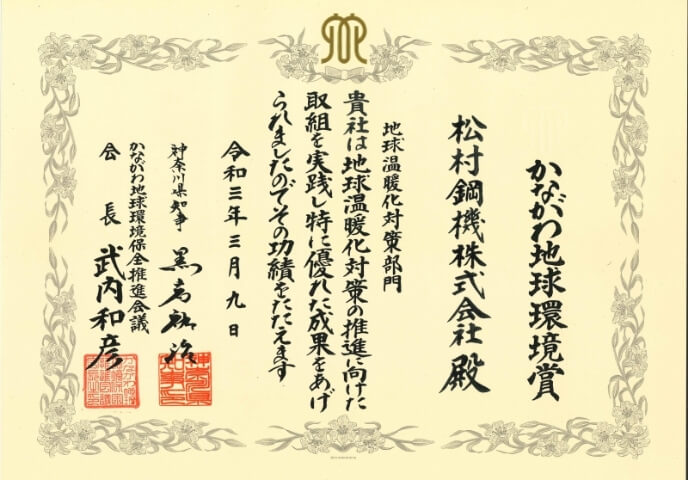 かながわ地球環境賞
松村鋼機株式会社 殿
地球温暖化対策部門
貴社は地球温暖化対策の推進に向けた
取組を実践し特に優れた成果をあげ
られましたのでその功績をたたえます
令和三年三月九日
神奈川県知事 黒岩祐治
かながわ地球環境保全推進会議
会長 武内和彦